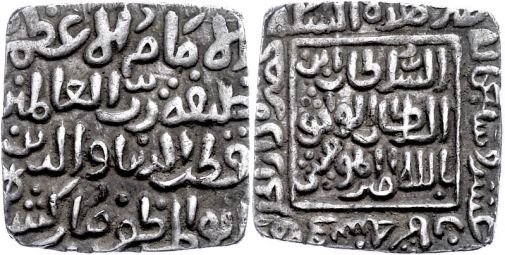 الامام الاعظم
خليفة رب العالمين
قطب الدنيا والدين
ابو المظفر مباركشاه
السلطان ابن
السلطان الواثق
بالله امير المؤمنين
ضرب هذه السكة
عشر وسبعمائة